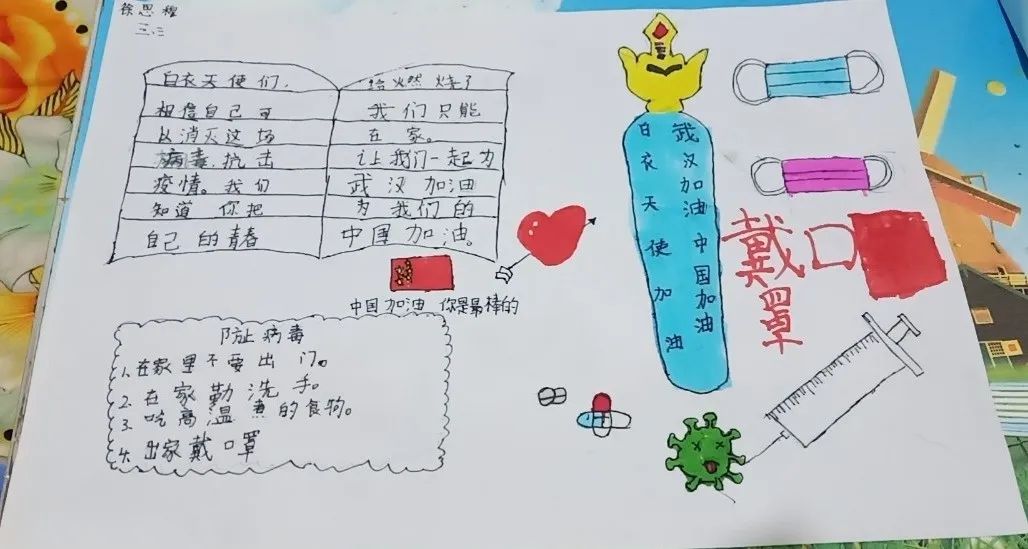 徐思程
三.三
白衣天使们.
相信自己可
以消灭这场
病毒.抗击
疫情。我们
知道你把
自己的青春
给燃烧了
我们只能
在家。
让我们一起为
武汉加油
为我们的
中国加油。
中国加油 你是最棒的
防止病毒
1.在家里不要出门。
2.在家勤洗手。
3.吃高温煮的食物。
4.出家戴口罩
武汉加油 中国加油
白衣天使加油
戴口罩